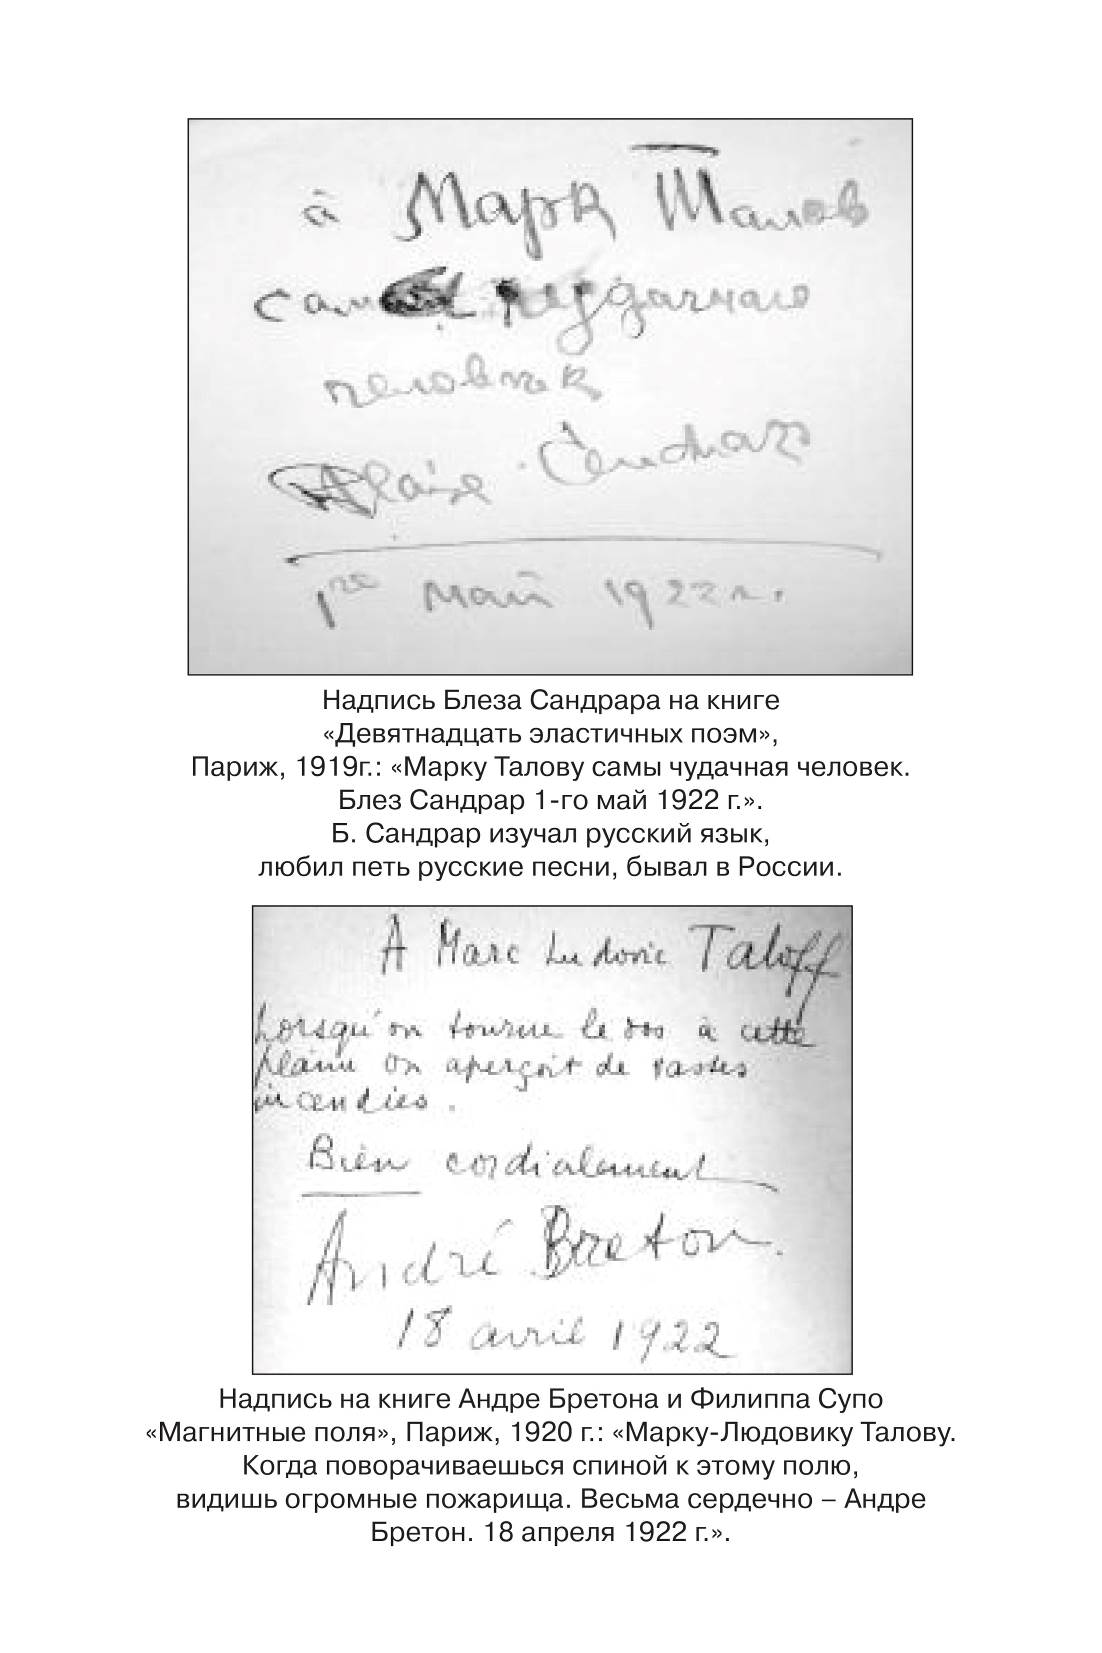 à Марк Талов
человек
Blaise Cendrars
1го май 1922 г.
Надпись Блеза Сандрара на книге
«Девятнадцать эластичных поэм»,
Париж, 1919г.: «Марку Талову самы чудачная человек.
Блез Сандрар 1-го май 1922 г.».
Б. Сандрар изучал русский язык,
любил петь русские песни, бывал в России.
A Marc Ludovic Taloff
Lorsqu'on tourne le dos à cette
plaine on aperçoit de vastes
incendies.
Bien cordialement
André Breton.
18 avril 1922
Надпись на книге Андре Бретона и Филиппа Супо
«Магнитные поля», Париж, 1920 г.: «Марку-Людовику Талову.
Когда поворачиваешься спиной к этому полю,
видишь огромные пожарища. Весьма сердечно – Андре
Бретон. 18 апреля 1922 г.».